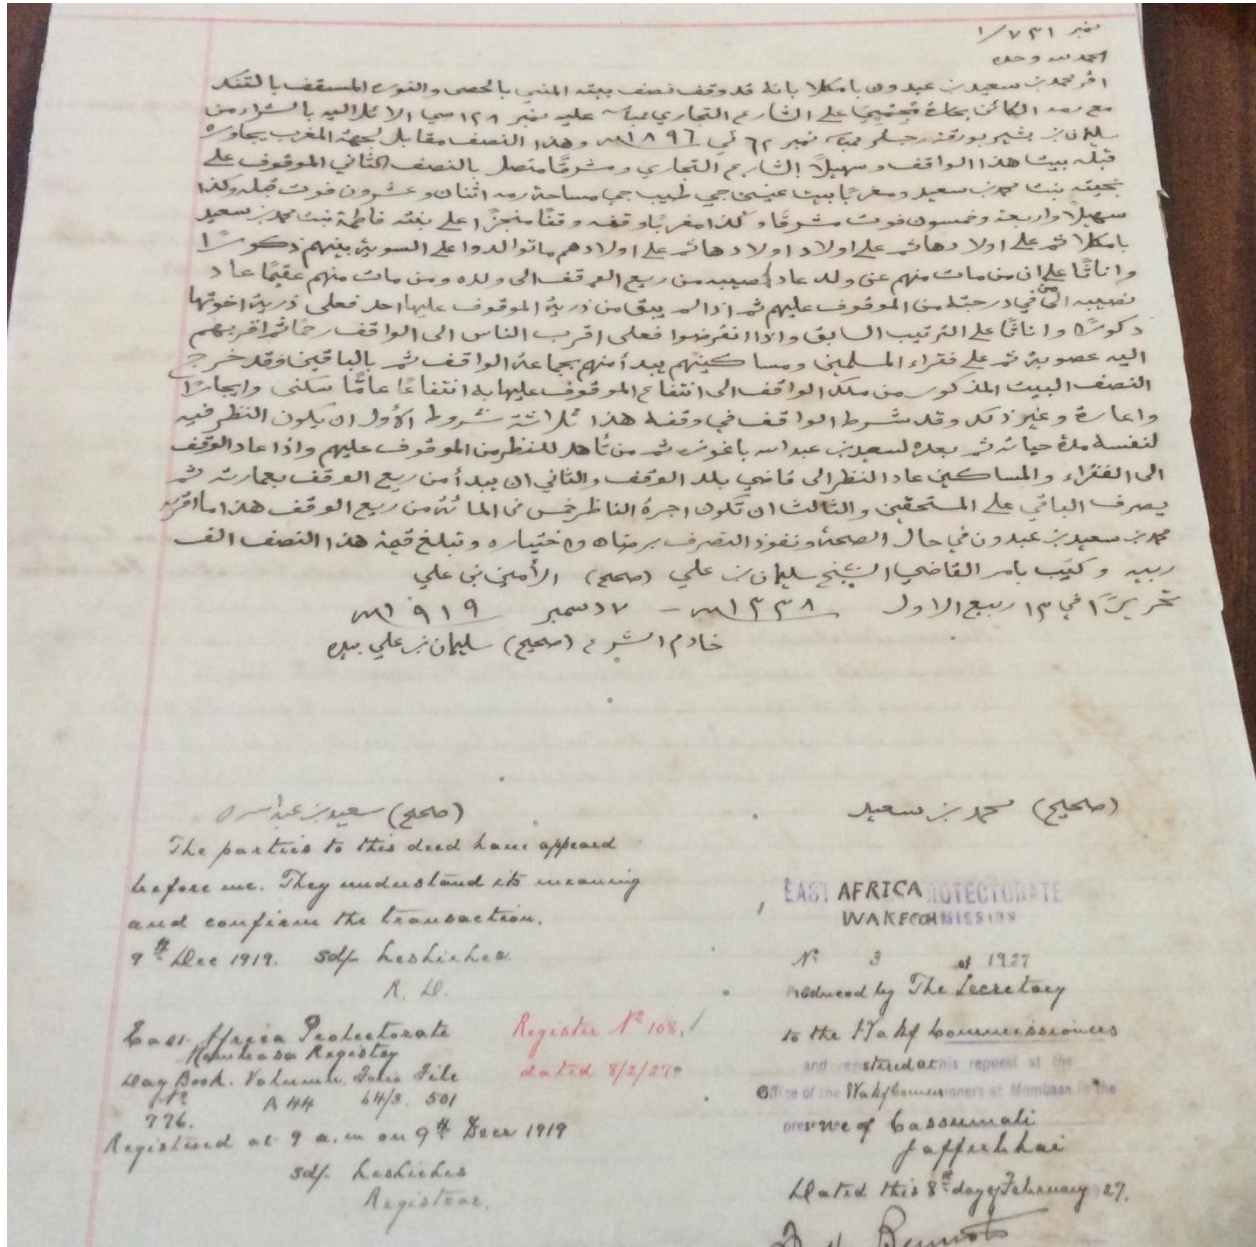 نمبر ١/٧٣١
الحمد لله وحده
اقر محمد بن سعيد بن عبدون بامكلا بانه قد وقف نصف بيته المبني بالحصى والنوره المسقف بالتنك
مع رمه الكائن بحارة على الشارع التجاري عليه نمبر ١٢٨ الائل اليه بالشراء من
سليمان بن بشير نمبر ٦٢ في ١٨٩٦م وهذا النصف مقابل لجهة المغرب يجاوره
قبلة بيت هذا الواقف وسهيلاً الشارع التجاري ومشرقًا متصل بالنصف الثاني الموقوف على
بنت محمد بن سعيد ومغربًا بيت جي طيب جي مساحة رمه اثنان وعشرون فوت قبلة وكذا
سهيلاً واربعة وخمسون فوت مشرقًا وكذا مغربًا وقفه وقفًا منجزًا على بنته فاطمة بنت محمد بن سعيد
بامكلا ثم على اولادها ثم على اولاد اولادها ثم على اولادهم ما توالدوا على السوية بينهم ذكورًا
واناثًا على ان من مات منهم عن ولد عاد نصيبه من ريع الوقف الى ولده ومن مات منهم عقيمًا عاد
نصيبه الى من في درجته من الموقوف عليهم ثم اذا لم يبق من ذرية الموقوف عليها احد فعلى ذرية اخوتها
ذكورًا واناثًا على الترتيب السابق واذا انقرضوا فعلى اقرب الناس الى الواقف رحمًا ثم اقربهم
اليه عصوبة ثم على فقراء المسلمين ومساكينهم يبدأ منهم بجماعة الواقف ثم بالباقين فقد خرج
النصف البيت المذكور من ملك الواقف الى انتفاع الموقوف عليها به انتفاعًا عامًا سكنى وايجارًا
واعارة وغير ذلك وقد شرط الواقف في وقفه هذا ثلاثة شروط الأول ان يكون النظر فيه
لنفسه مدة حياته ثم بعده لسعيد بن عبد الله باغوزه ثم من تأهل للنظر من الموقوف عليهم واذا عاد الوقف
الى الفقراء والمساكين عاد النظر الى قاضي بلد الوقف والثاني ان يبدأ من ريع الوقف بعمارته ثم
يصرف الباقي على المستحقين والثالث ان تكون اجرة الناظر خمس في المائة من ريع الوقف هذا ما اقر به
محمد بن سعيد بن عبدون في حال الصحة ونفوذ التصرف برضاه واختياره وتبلغ قيمة هذا النصف الف
ربيه وكتب بامر القاضي الشيخ سليمان بن علي (صحيح) الأمين بن علي
تحريرًا في ١٣ ربيع الاول ١٣٣٨ - ٧ دسمبر ١٩١٩م
خادم الشرع (صحيح) سليمان بن علي بيده
(صحيح) محمد بن سعيد
(صحيح) سعيد بن عبد الله
The parties to this deed have appeard
before me. They understand its meaning
and confirm the transaction.
9th Dec 1919. sdf
R. D.
East Africa Protectorate
Mombasa Registry
Day Book. Volumn. Folio File
No A 44 64/3. 501
776.
Registered at 9 a.m on 9th Decr 1919
sdf
Registrar.
Register No 108.
dated 8/2/27
EAST AFRICA PROTECTORATE
WAKF COMMISSION
No 3 of 1927
Produced by The Secretary
to the Wakf Commissioners
and registered at his request at the
Office of the Wakf Commissioners at Mombasa in the
presence of Cassumali
Jafferbhai
Dated this 8th day of February 27.